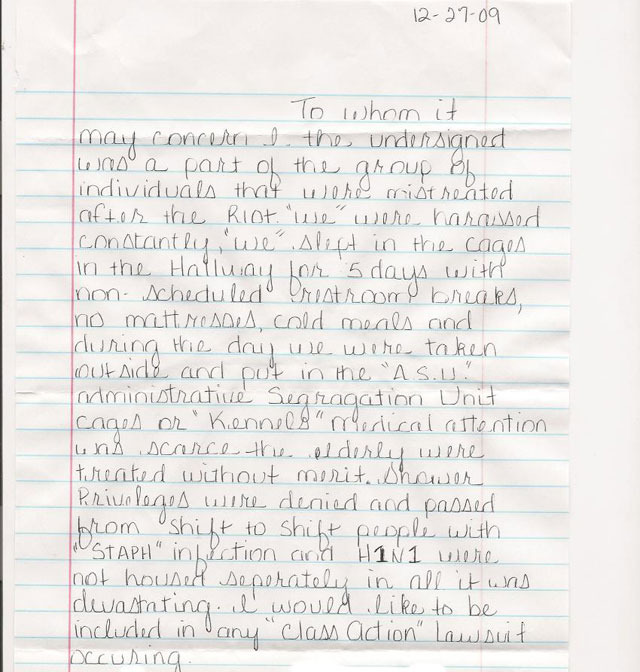 12-27-09
To whom it
may concern I. the undersigned
was a part of the group of
individuals that were mistreated
after the Riot. "We" were harassed
constantly, "we" slept in the cages
in the Hallway for 5 days with
non-scheduled restroom breaks,
no mattresses, cold meals and
during the day we were taken
outside and put in the "A.S.U."
administrative Segragation Unit
cages or "Kennels" medical attention
was scarce the elderly were
treated without merit. Shower
Privoleges were denied and passed
from shift to shift people with
"STAPH" infection and H1N1 were
not housed seperately in all it was
devastating. I would like to be
included in any "Class Action" Lawsuit
occuring.